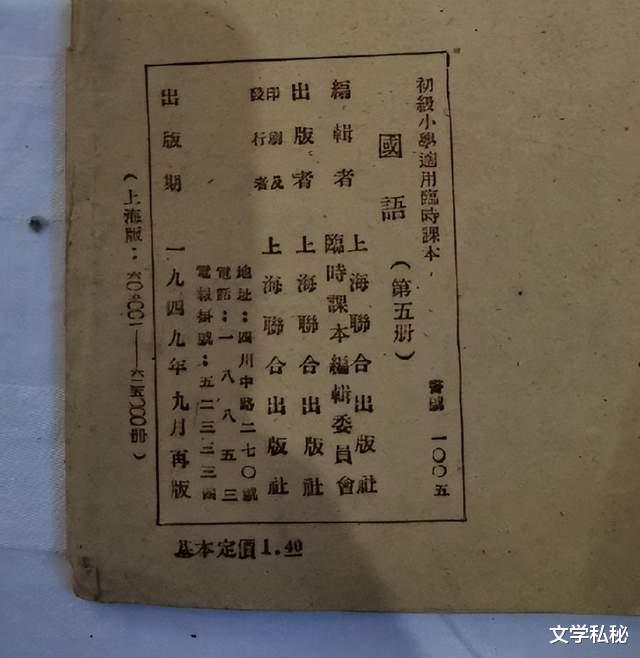 初級小學適用臨時課本
書號 一〇〇五
國語(第五册)
編輯者 上海聯合出版社
臨時課本編輯委員會
出版者 上海聯合出版社
印刷及
發行者 上海聯合出版社
地址:四川中路二七〇號
電話:一八八五三
電報掛號:五二三三三
出版期 一九四九年九月再版
(上海版:六〇四〇〇一——六二五〇〇〇冊)
基本定價1.40
文学私秘